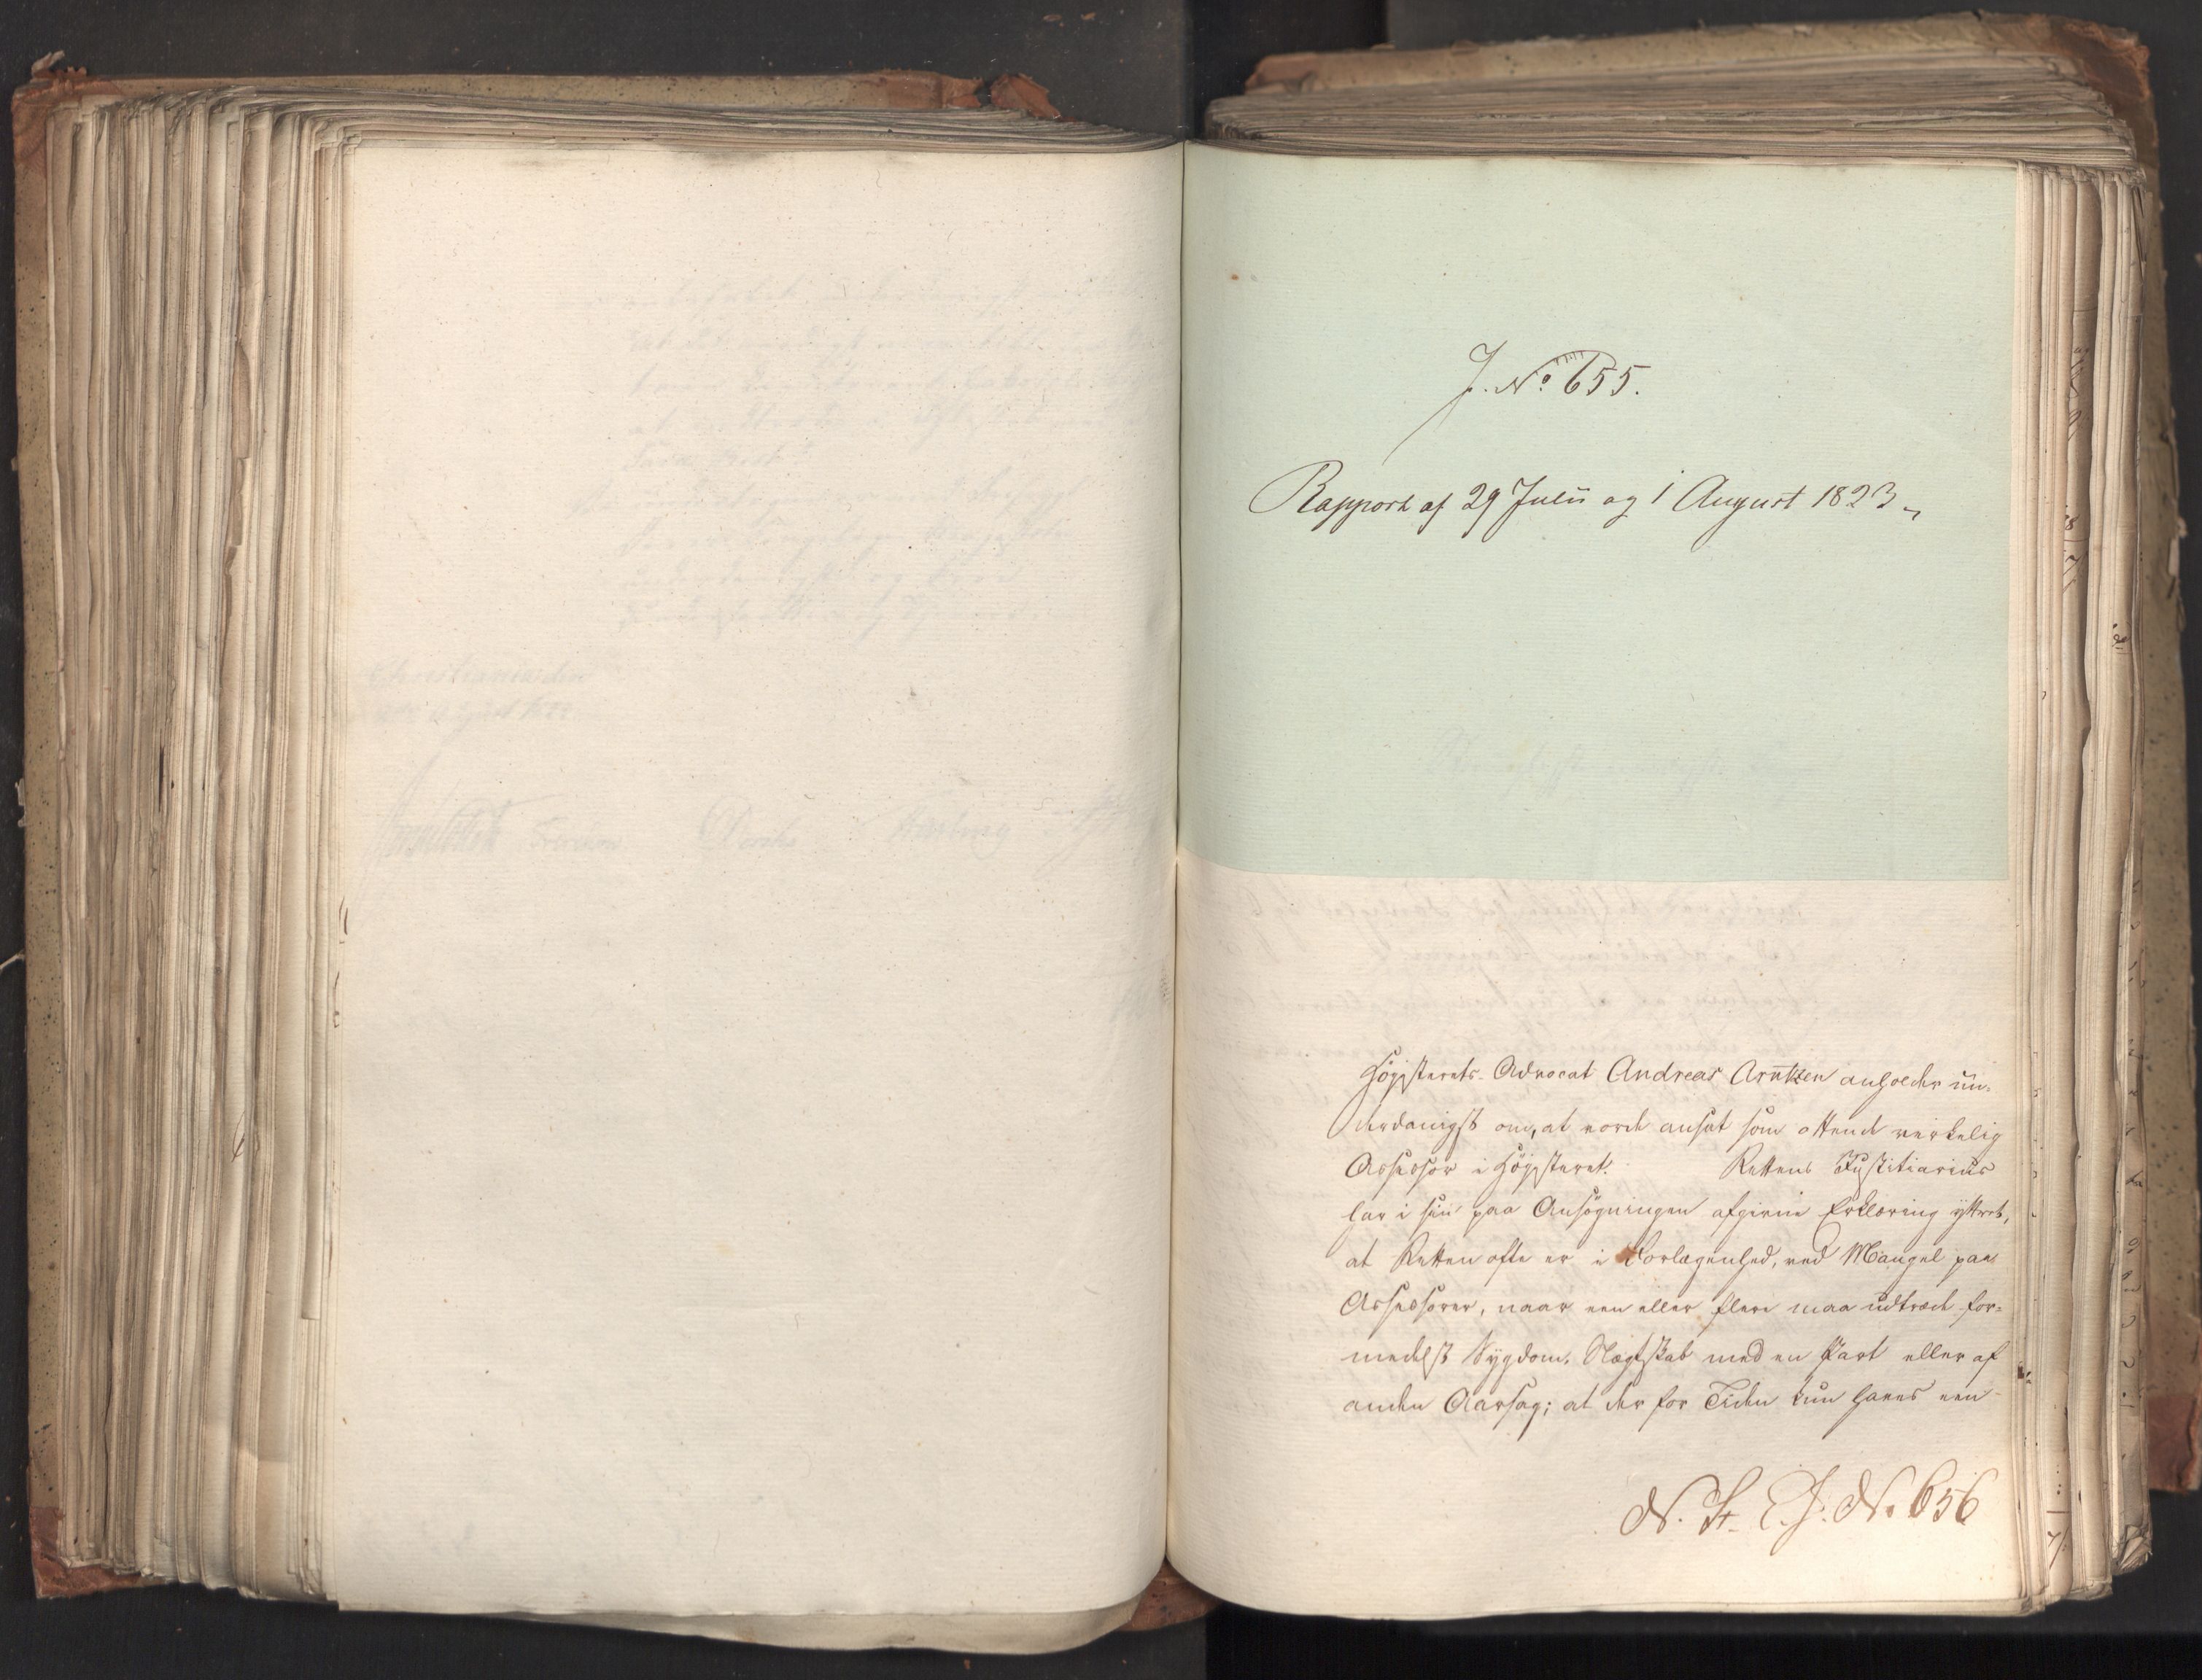 J. No 655.
Rapport af 29 Julii og 1 August 1823
Höjesterets-Advocat Andreas Arntzen anholder un-
derdanigst om, at vorde ansat som ottende virkelig
Assessor i Höjesteret. Rettens Justitiarius
har i sin paa Ansögningen afgivne Erklæring yttret,
at Retten ofte er i Forlegenhed, ved Mangel paa
Assessorer, naar een eller flere maa udtræde for-
medelst Sygdom, Slægtskab med en Part eller af
anden Aarsag; at der for Tiden kun haves een
N. St. E. J. No 656